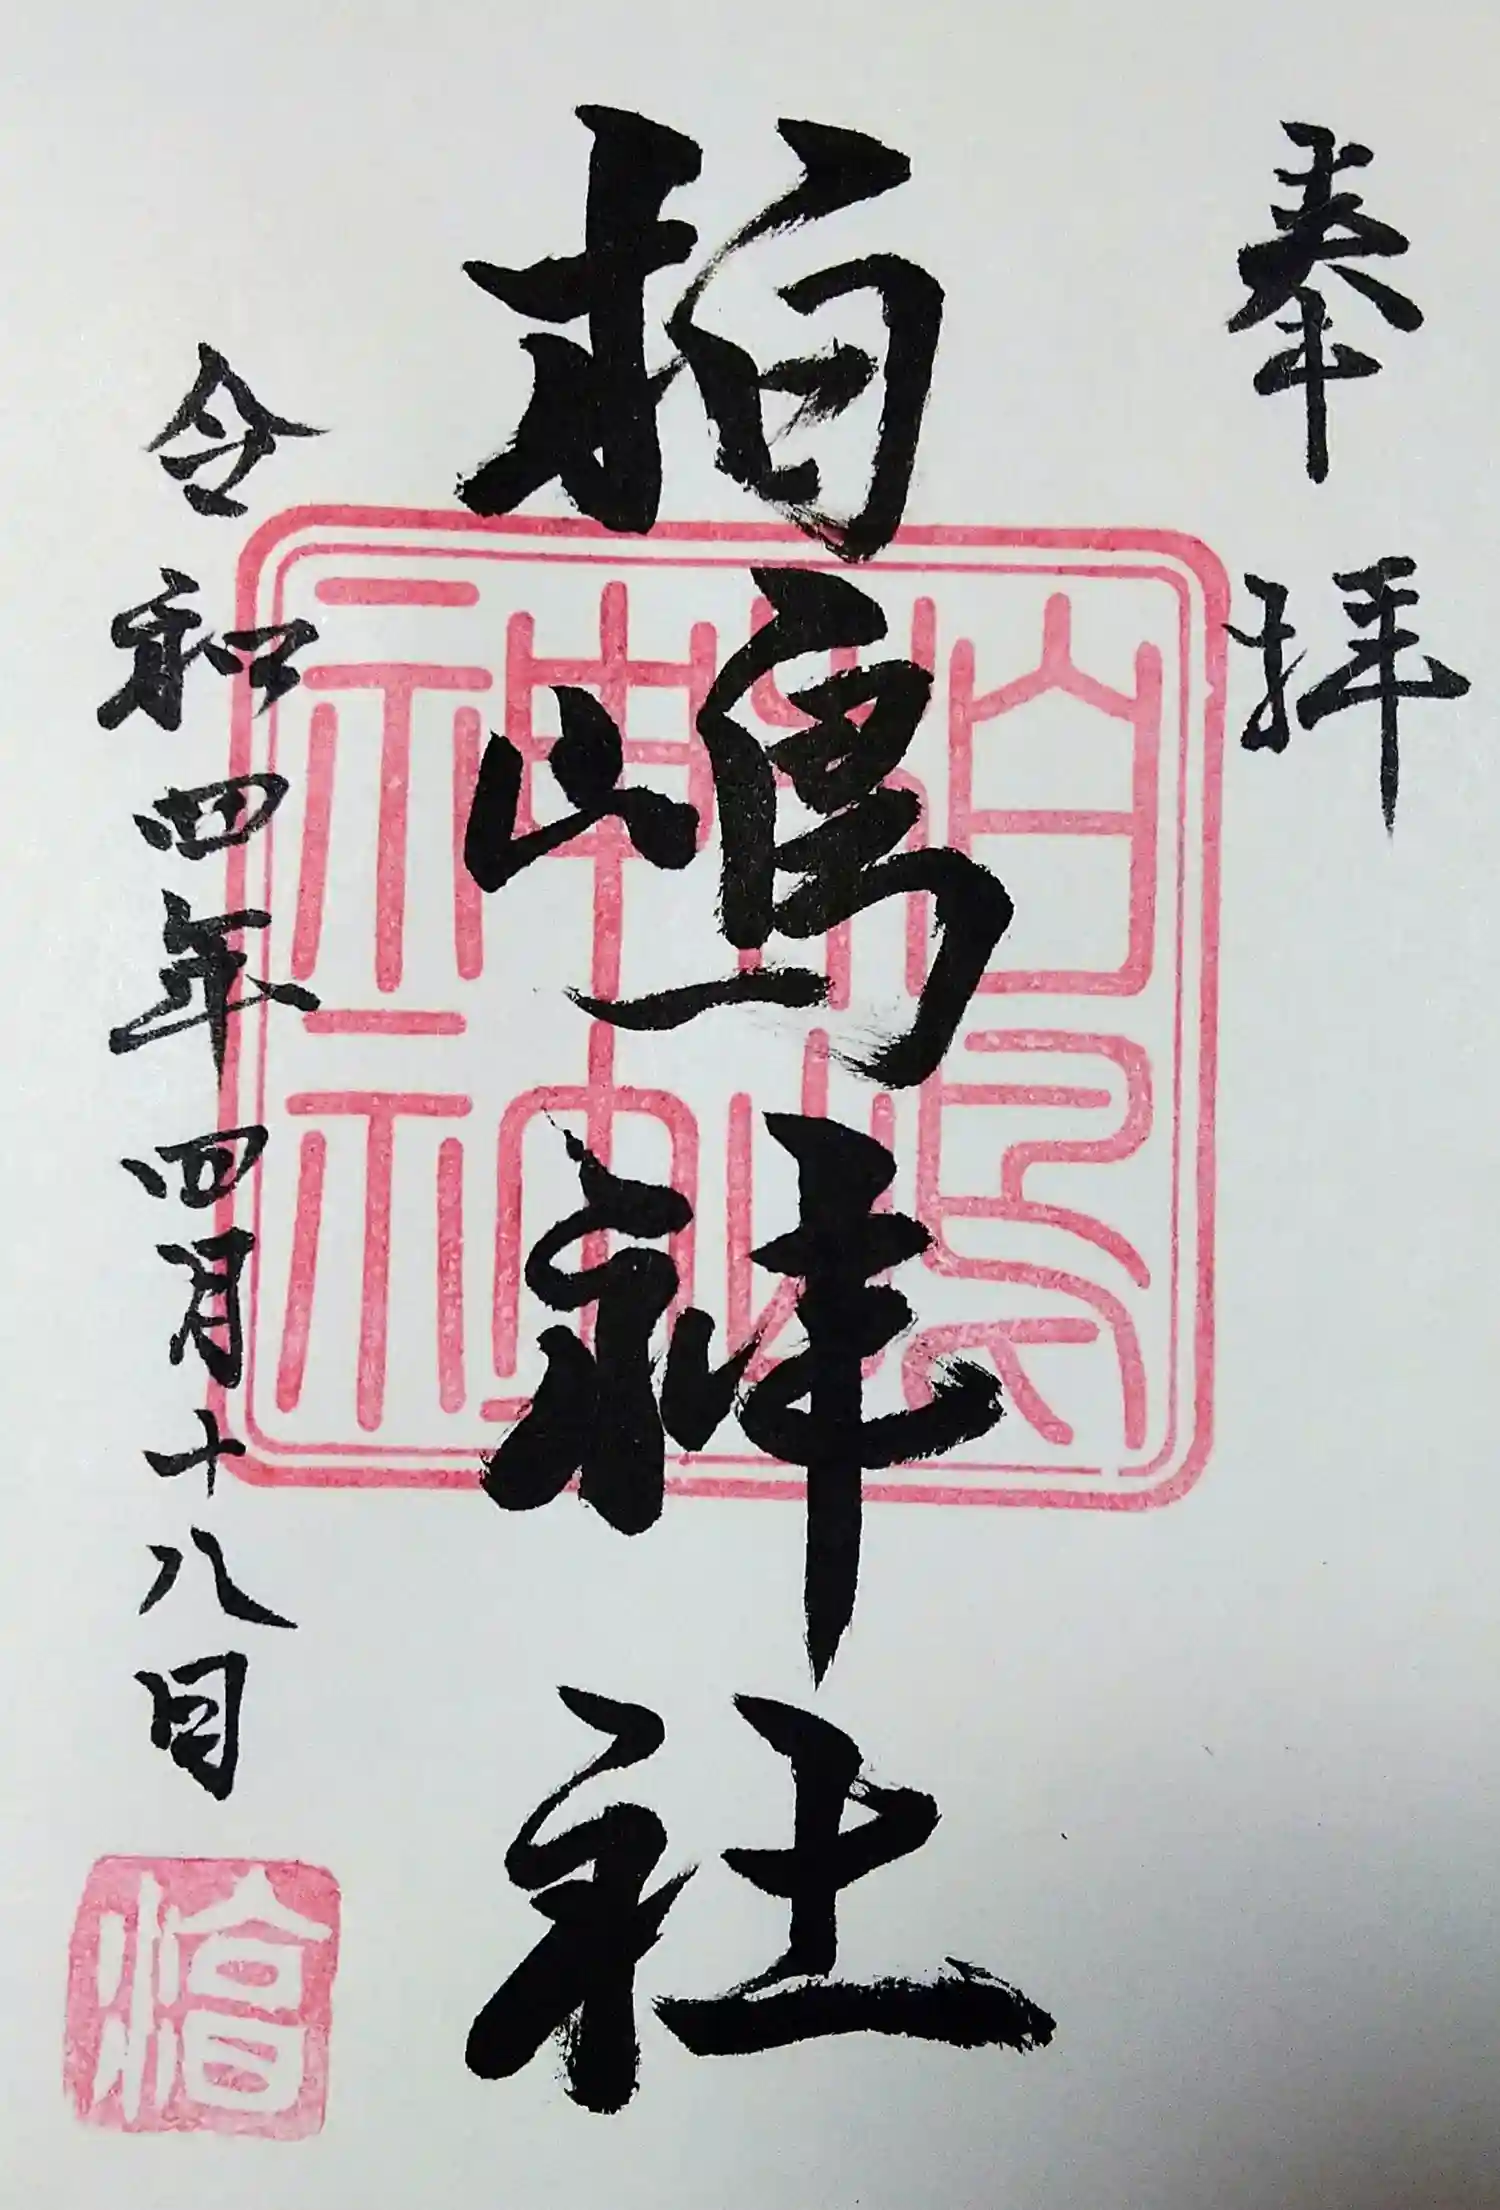 奉拝
柏嶋神社
柏嶋神社
令和四年四月十八日